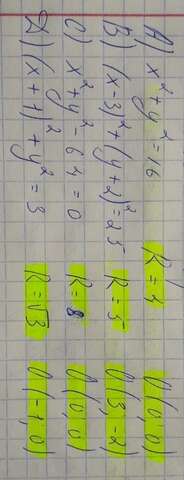 A) x² + y² = 16 R = 4 O(0; 0)
B) (x-3)² + (y+2)² = 25 R = 5 O(3; -2)
C) x² + y² - 64 = 0 R = 8 O(0; 0)
D) (x+1)² + y² = 3 R = √3 O(-1; 0)